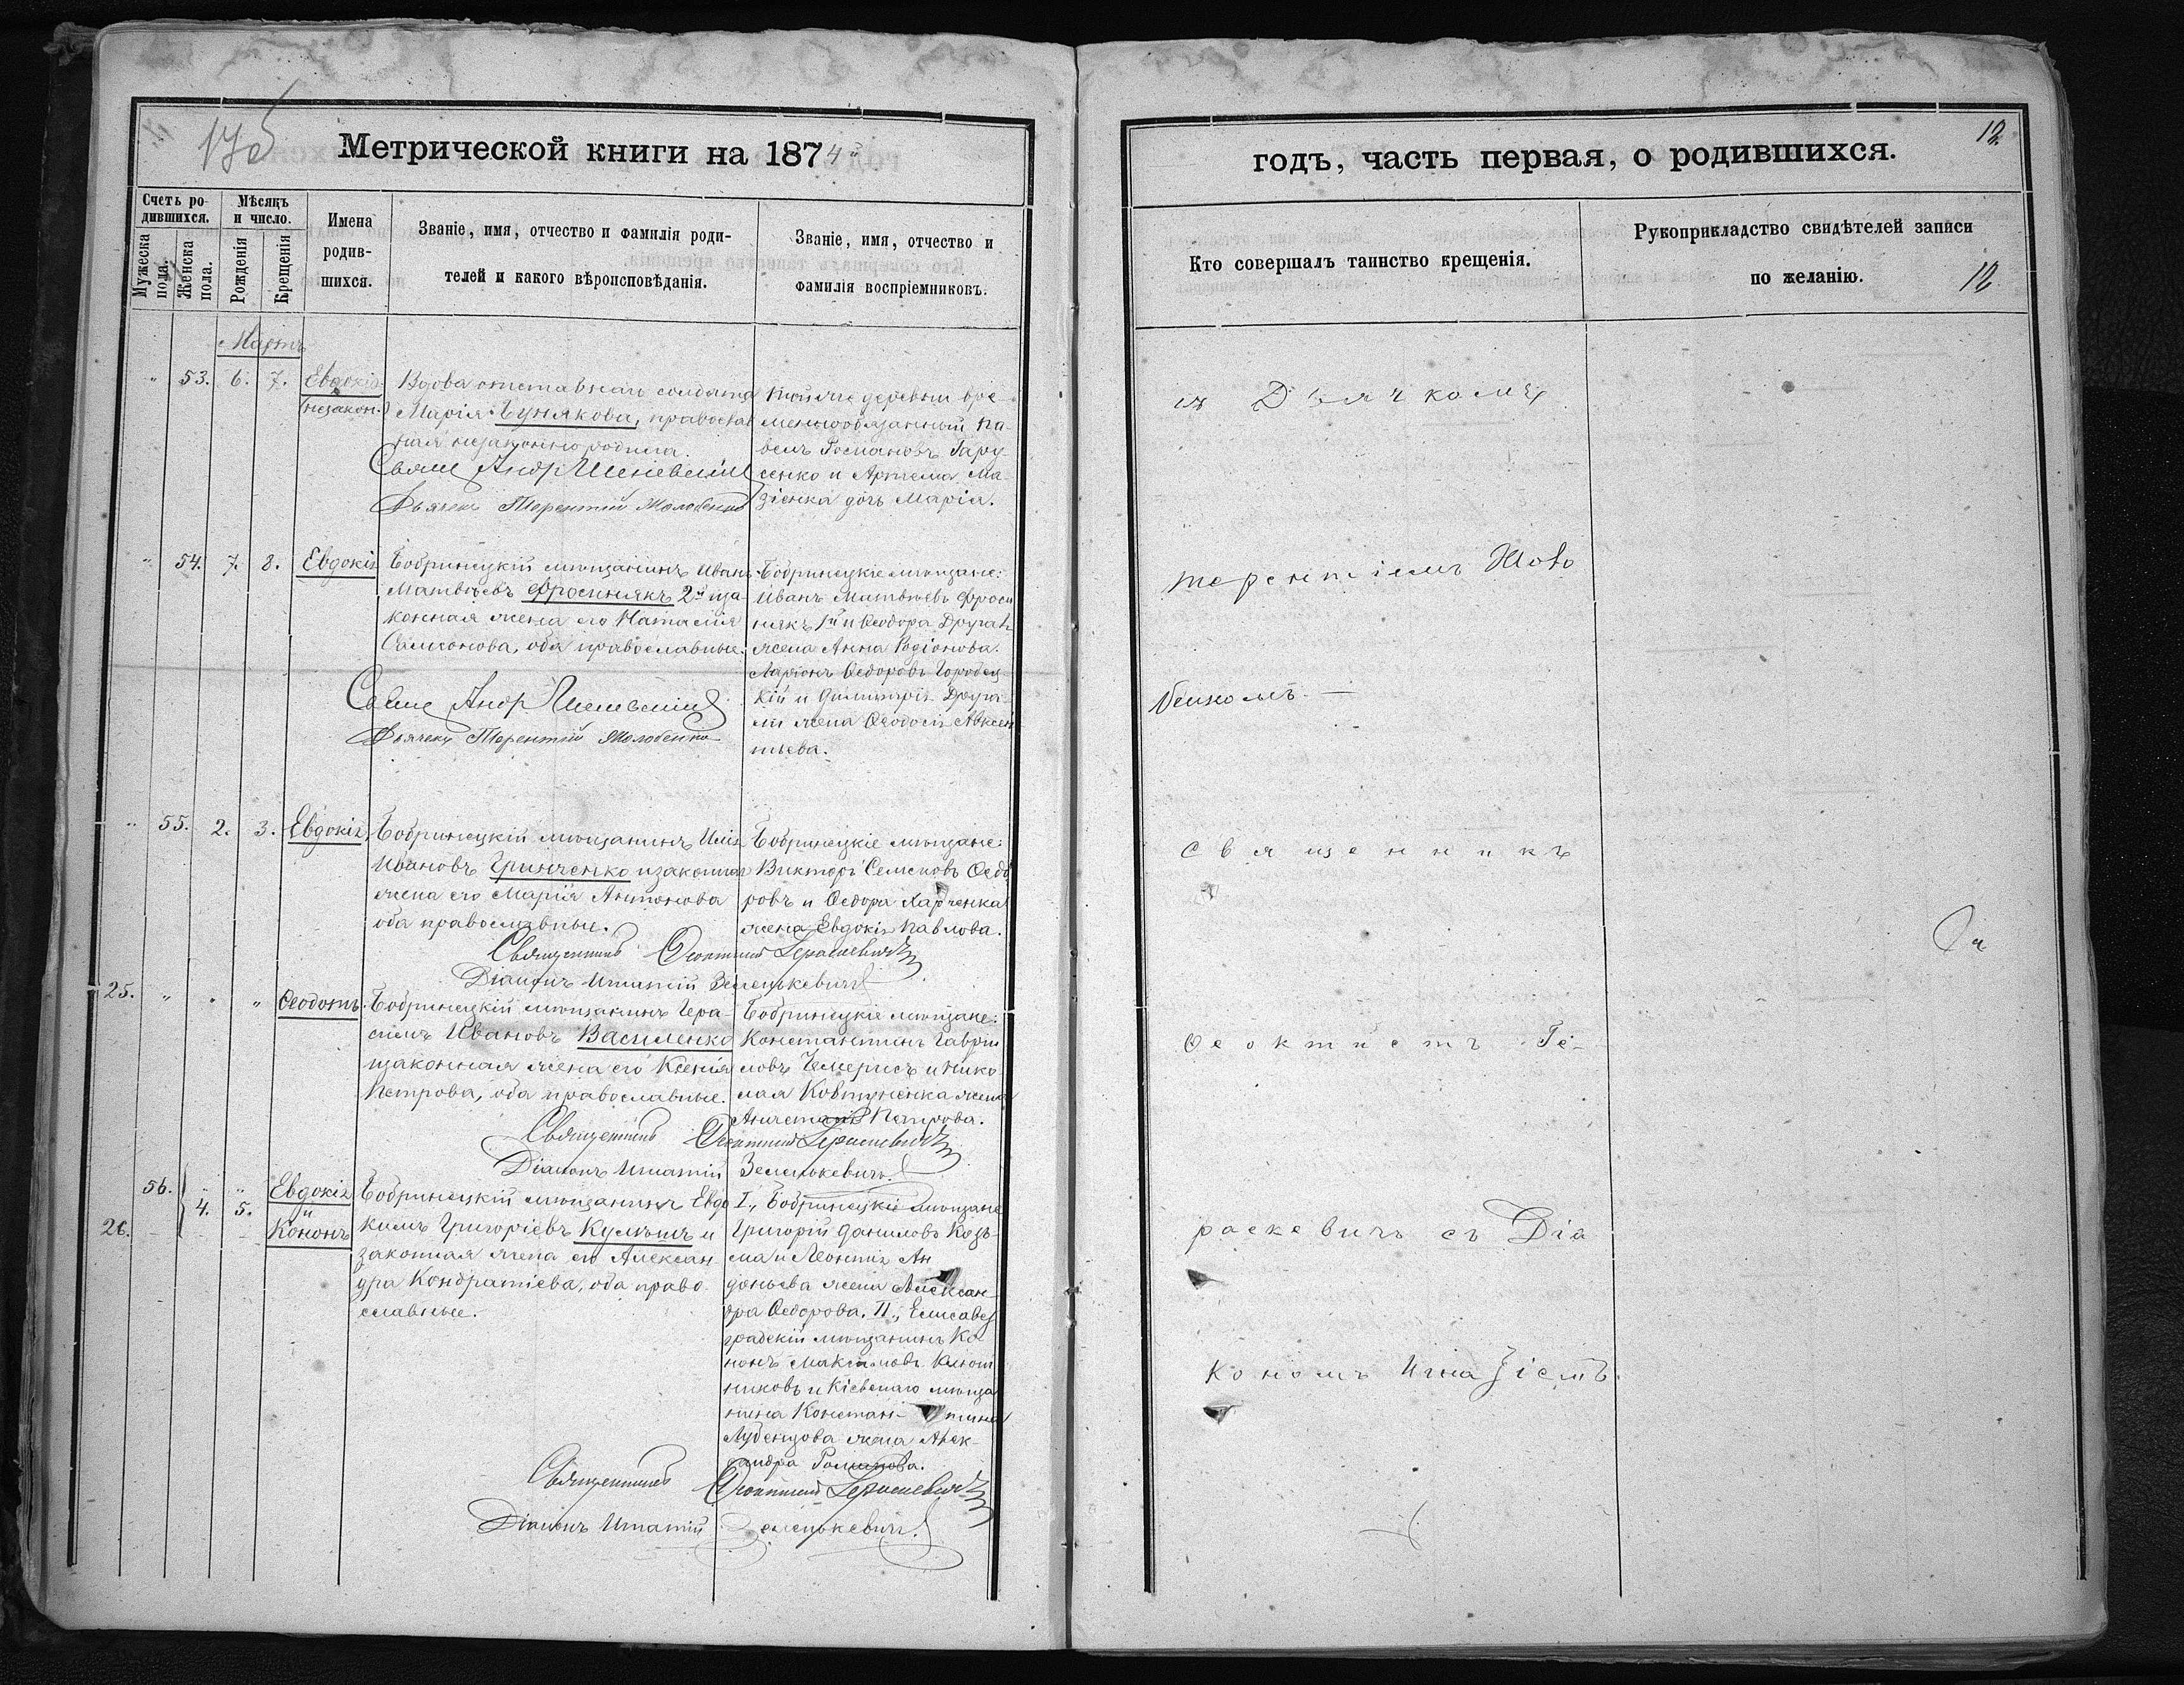 176
Метрической книги на 1874й
Счетъ ро-
дившихся.
Мужеска
пола.
Женска
пола.
Мѣсяцъ
и число.
Рожденія
Крещенія
Имена
родив-
шихся.
Званіе, имя, отчество и фамилія роди-
телей и какого вѣроисповѣданія.
Званіе, имя, отчество и
фамилія воспріемниковъ.
Мартъ
" 53. 6. 7. Евдокія
(незакон.)
Вдова отставнаго солдата
Марія Бунякова, православ
ная незаконно родила.
Свящ Андр
Дьячекъ Терентій
тойже деревни вре-
меннообязанный Па-
велъ Романовъ Гару-
сенко и Артема Ма-
зіенка дочь Марія.
" 54. 7. 8. Евдокія
Бобринецкій мѣщанинъ Иванъ
Матвѣевъ Фросинякъ 2й и за-
конная жена его Наталія
Самсонова, оба православные.
Свящ Андр
Дьячекъ Терентій
Бобринецкіе мѣщане:
Иванъ Матвѣевъ Фроси
някъ 1й и Ѳеодора
жена Анна Родіонова.
Ларіонъ Ѳедоровъ Городец
кій и Димитрія
жена Ѳеодосія Авксен
тьева.
" 55. 2. 3. Евдокія
Бобринецкій мѣщанинъ Илія
Ивановъ Гринченко и законная
жена его Марія Антонова
оба православные.
Священникъ Ѳеоктистъ Гераскевичъ
Діаконъ Игнатій Зеленкевичъ
Бобринецкіе мѣщане:
Викторъ Семеновъ Ѳедо
ровъ и Ѳедора Харченка
жена Евдокія Павлова.
25. " " " Ѳеодотъ.
Бобринецкій мѣщанинъ Гера-
симъ Ивановъ Василенко
и законная жена его Ксенія
Петрова, оба православные.
Священникъ Ѳеоктистъ Гераскевичъ
Діаконъ Игнатій Зеленкевичъ.
Бобринецкіе мѣщане:
Константинъ Гаврии
ловъ Чемерисъ и Нико
лая Ковтуненка жена
Петрова.
56. " " Евдокія
4. 5. и
26. Кононъ
Бобринецкій мѣщанинъ Евдо
кимъ Григоріевъ Кулишъ и
законная жена его Алексан-
дра Кондратіева, оба право-
славные.
I., Бобринецкіе мѣщане
Григорій Даниловъ Козь-
ма и Леонтія Ан
доньева жена Алексан-
дра Ѳедорова. II., Елисавет
градскій мѣщанинъ Ко
нонъ Максимовъ Ключ
никовъ и Кіевскаго мѣща
нина Констан-тина
Лубенцова жена Алек-
сандра Романова.
Священникъ Ѳеоктистъ Гераскевичъ
Діаконъ Игнатій Зеленкевичъ.
годъ, часть первая, о родившихся.
12
Кто совершалъ таинство крещенія.
Рукоприкладство свидѣтелей записи
по желанію.
12
съ Дьячкомъ
Терентіемъ
Священникъ
Ѳеоктистъ Ге-
раскевичъ съ Діа
кономъ Игнатіемъ.